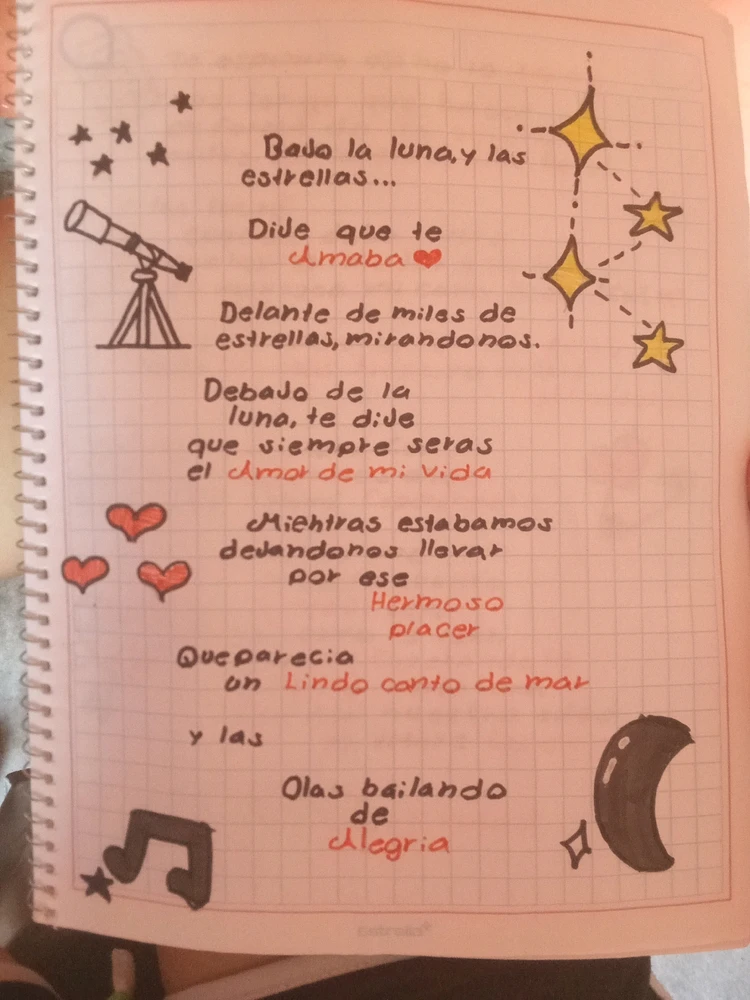 Bajo la luna, y las
estrellas...
Dije que te
Amaba
Delante de miles de
estrellas, mirandonos.
Debajo de la
luna, te dije
que siempre seras
el Amor de mi vida
Mientras estabamos
dejandonos llevar
por ese
Hermoso
placer
Que parecia
un Lindo canto de mar
y las
Olas bailando
de
Alegria